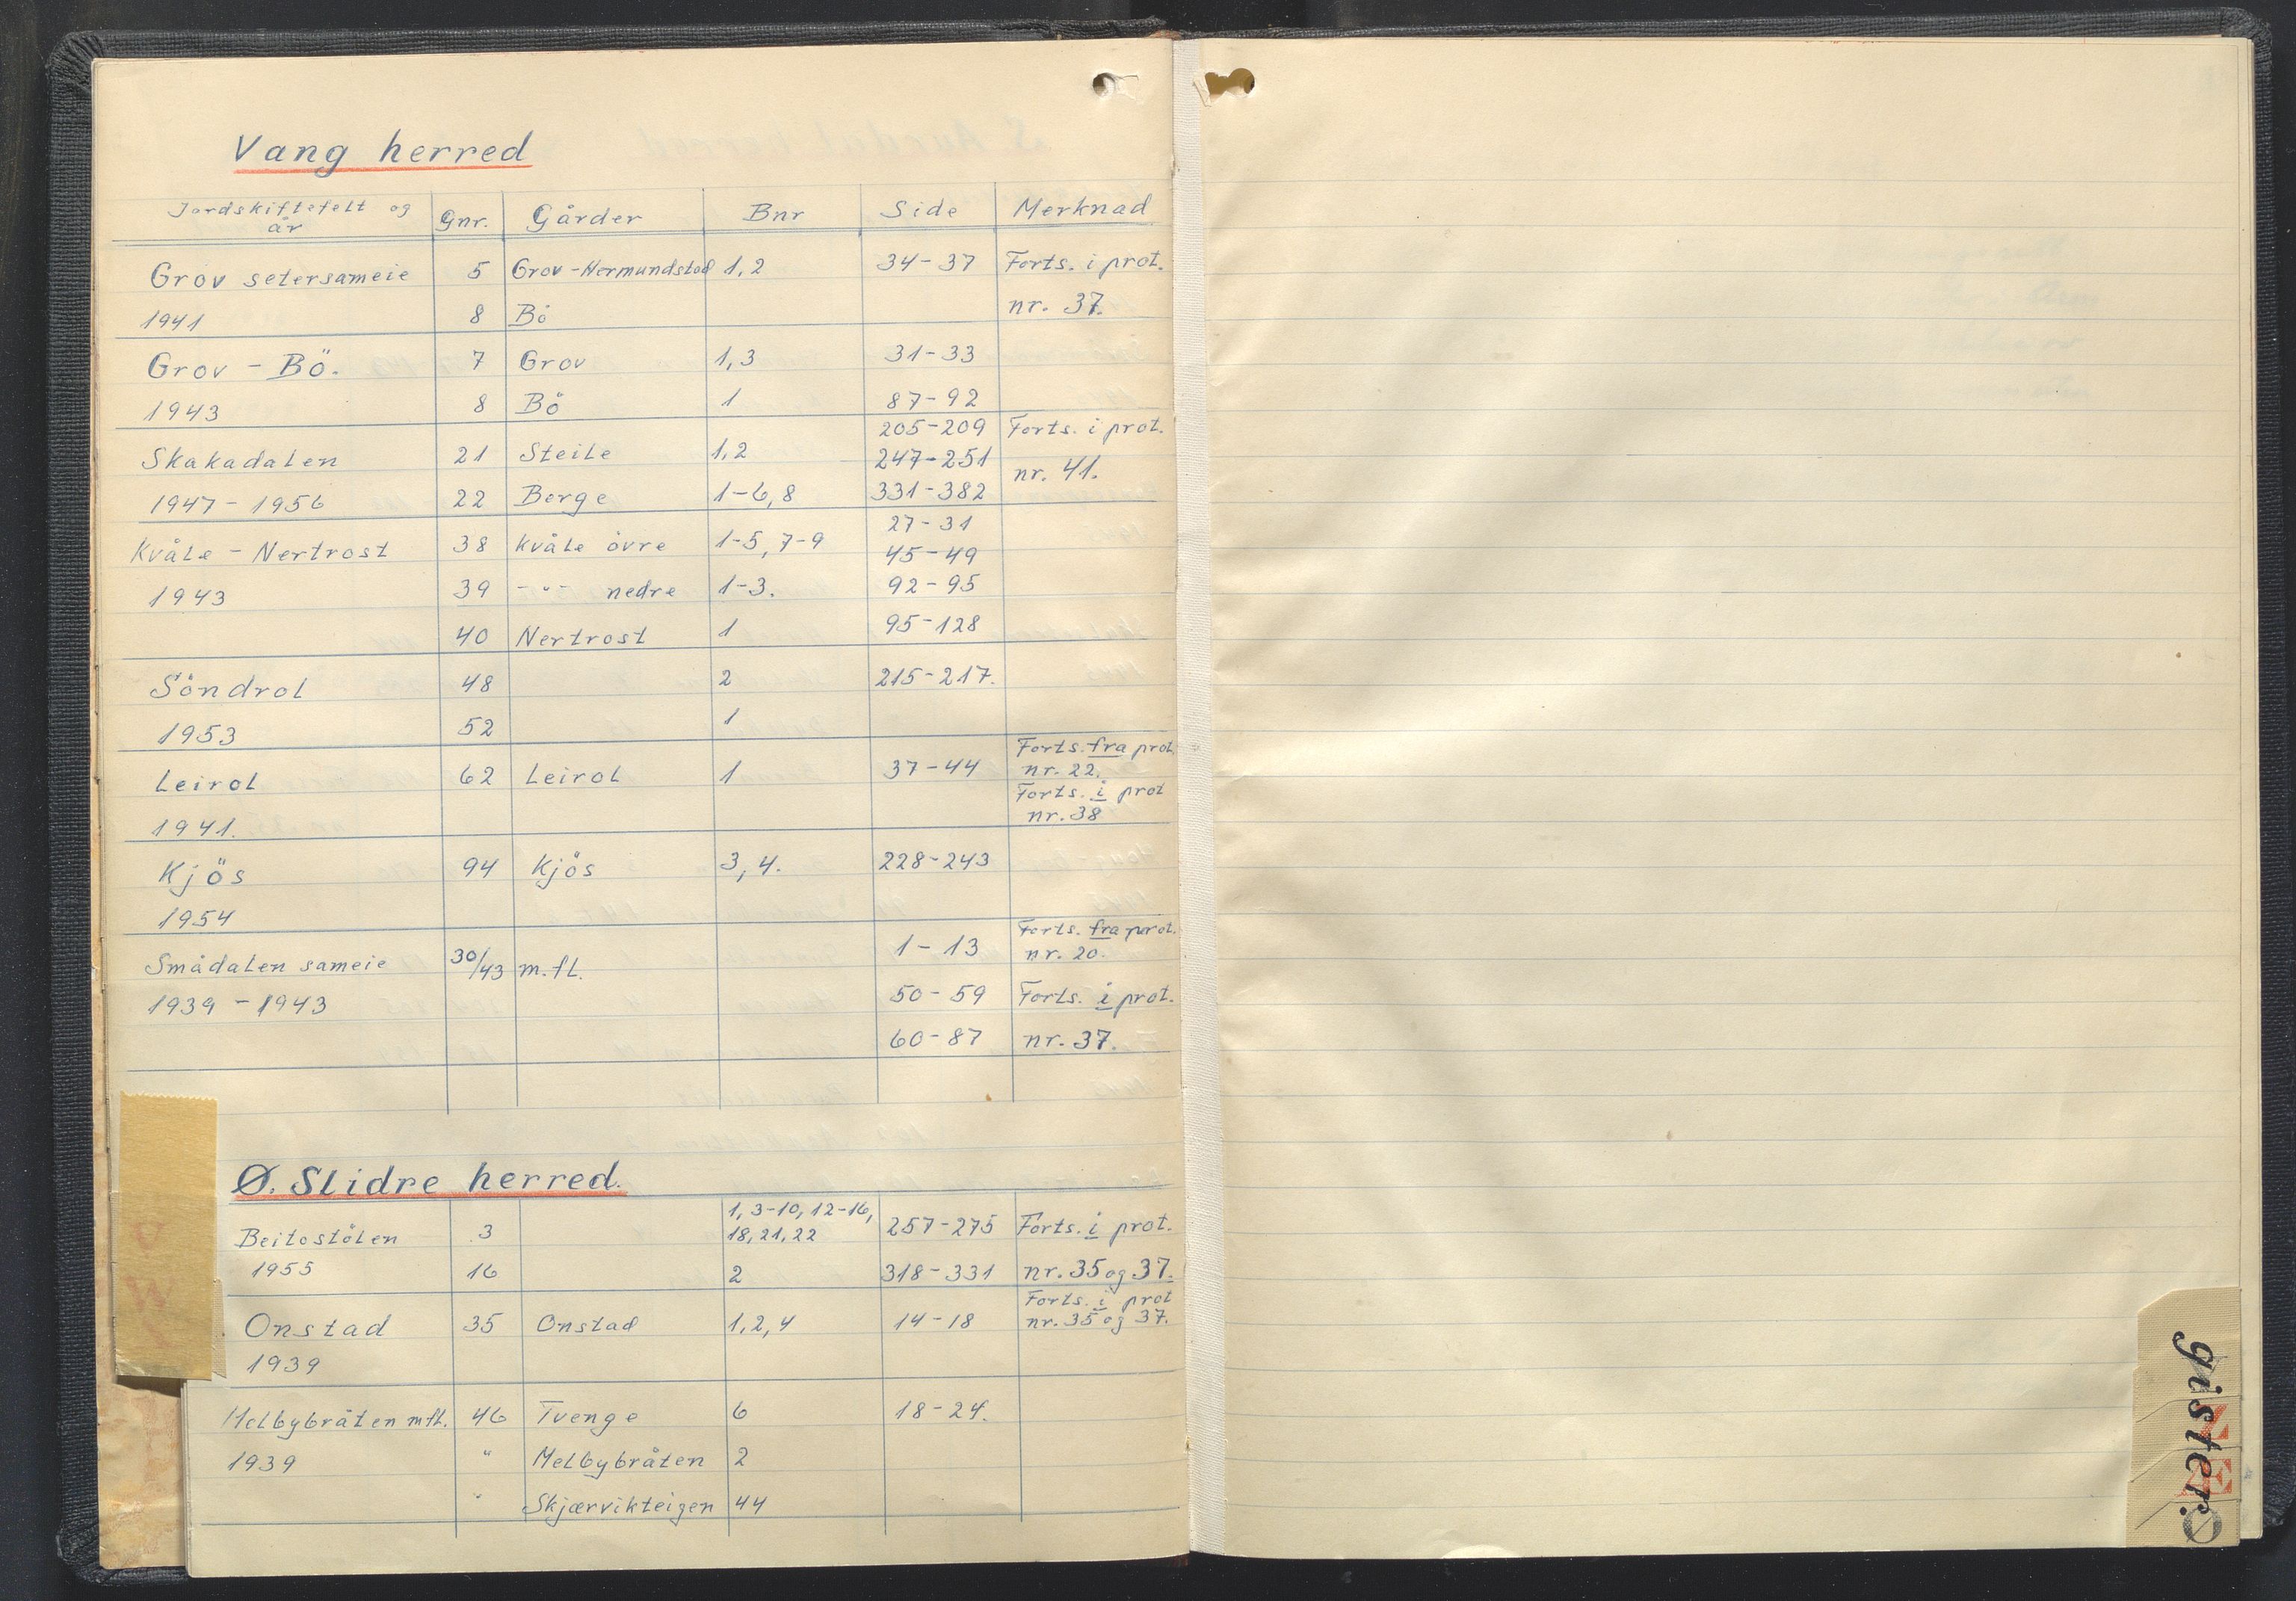 Vang herred
Jordskiftefelt og år Gnr. Gårder Bnr Side Merknad
Grov setersameie 5 Grov-Hermundstad 1,2 34-37 Forts. i prot.
1941 8 Bö nr. 37.
Grov - Bö. 7 Grov 1,3 31-33
1943 8 Bö 1 87-92
205-209 Forts. i prot.
Skakadalen 21 Steile 1,2 247-251 nr. 41.
1947-1956 22 Berge 1-6,8 331-382
27-31
Kvåle - Nertrost 38 Kvåle övre 1-5, 7-9 45-49
1943 39 -"- nedre 1-3. 92-95
40 Nertrost 1 95-128
Söndrol 48 2 215-217.
1953 52 1
Forts. fra prot.
Leirol 62 Leirol 1 37-44 nr. 22.
Forts. i prot
1941. nr. 38
Kjös 94 Kjös 3,4. 228-243
1954
Forts. fra prot.
Smådalen sameie 30/43 m.fl. 1-13 nr. 20.
1939-1943 50-59 Forts. i prot.
60-87 nr. 37.
Ø. Slidre herred.
1, 3-10, 12-16,
Beitostölen 3 18, 21, 22 257-275 Forts. i prot.
1955 16 2 318-331 nr. 35 og 37.
Forts. i prot
Onstad 35 Onstad 1,2,4 14-18 nr. 35 og 37.
1939
Melbybråten mfl. 46 Tvenge 6 18-24.
1939 " Melbybråten 2
" Skjærvikteigen 44
V
W
gister.
Z
Æ
Ø